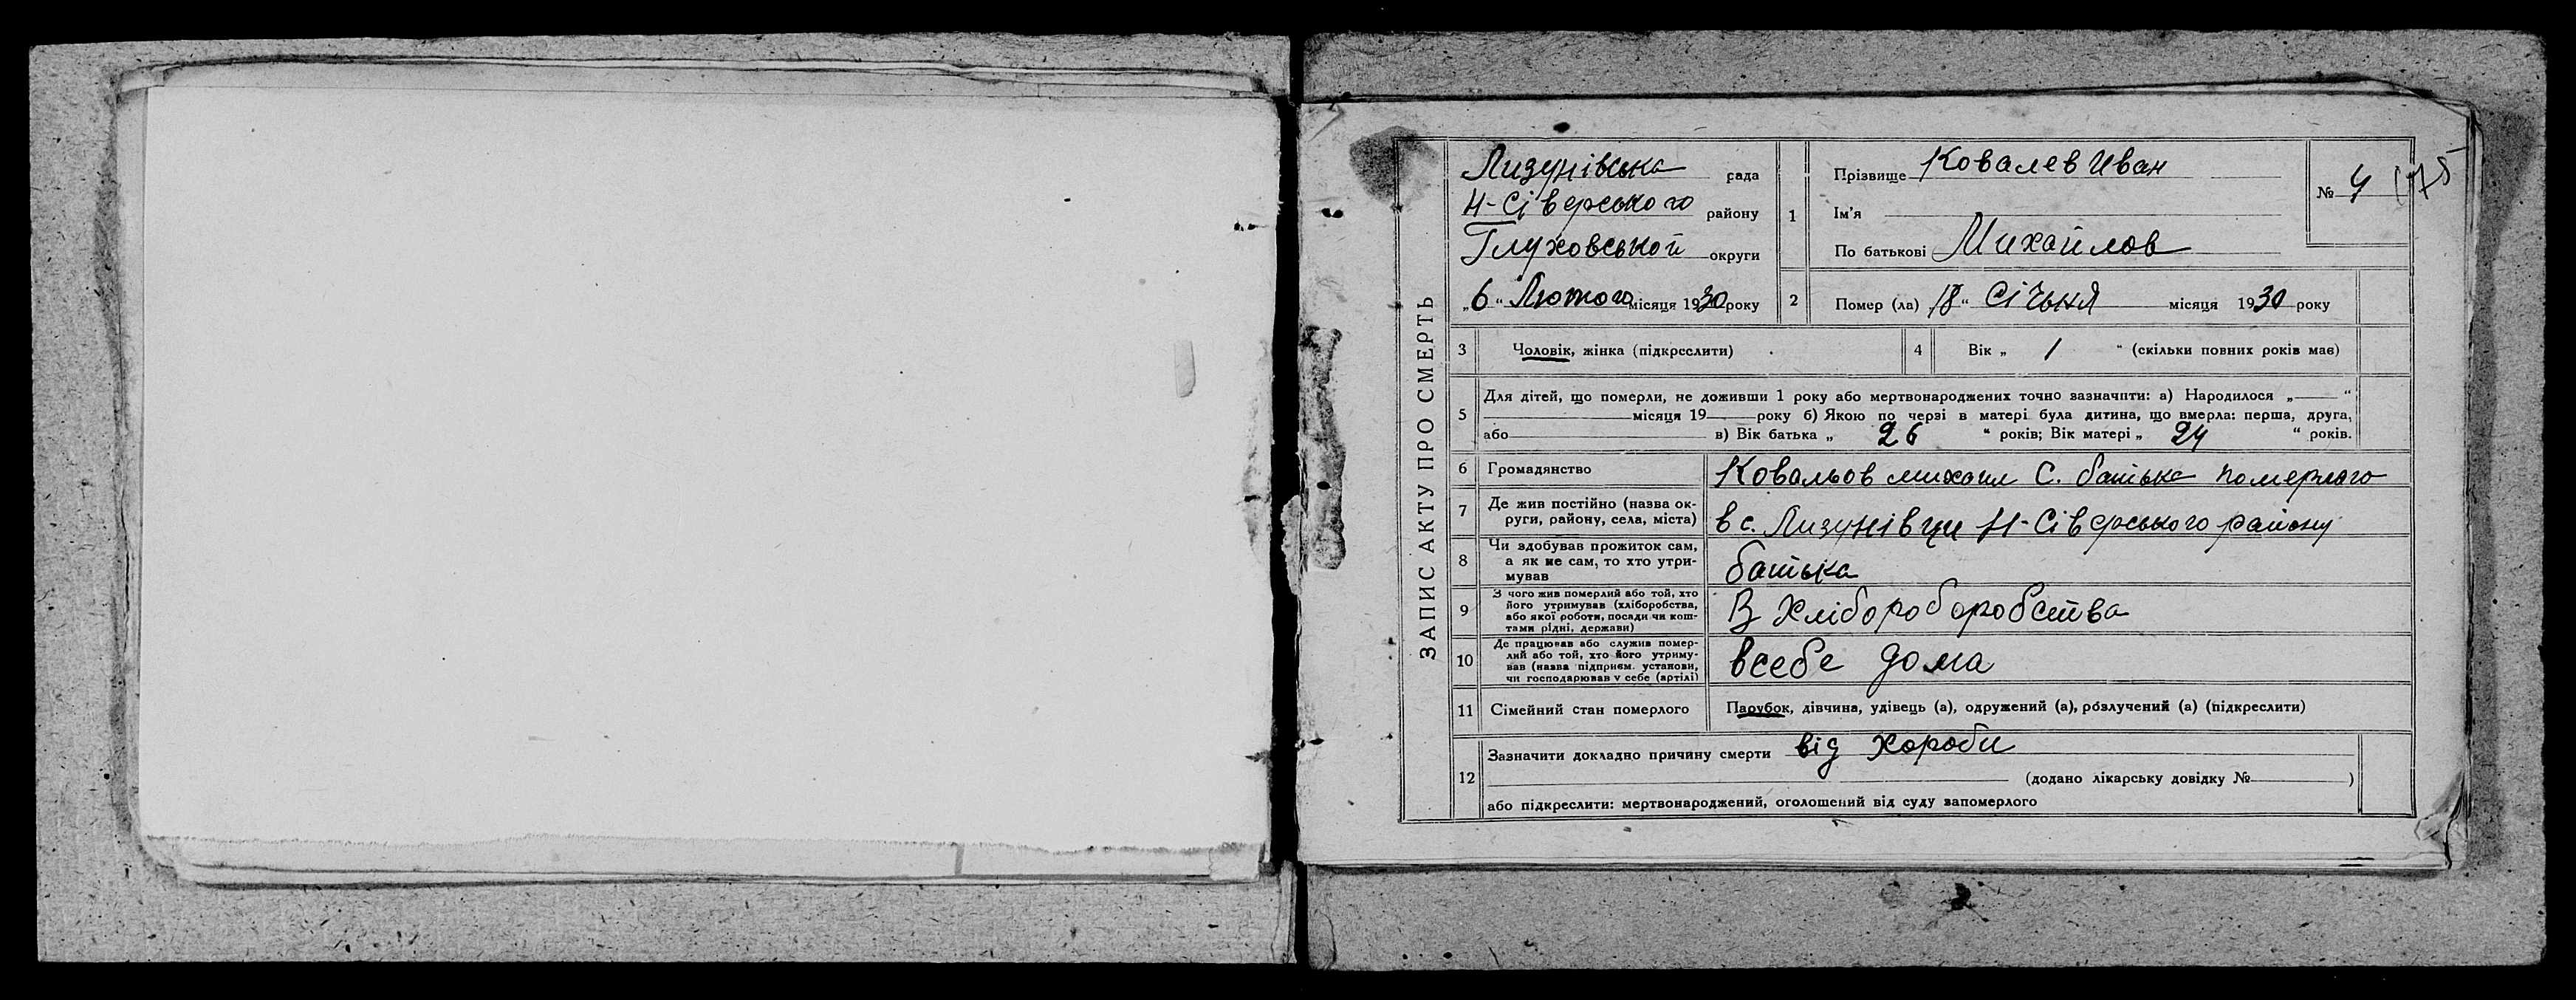 ЗАПИС АКТУ ПРО СМЕРТЬ
Лизунівська рада
Н-Сіверського району
Глуховськой округи
„6“ Лютого місяця 1930 року
1 Прізвище Ковалев Иван
Ім'я
По батькові Михайлов
№ 4 175
2 Помер (ла) 18“ Січьня місяця 1930 року
3 Чоловік, жінка (підкреслити)
4 Вік „ 1 “ (скільки повних років має)
5 Для дітей, що померли, не доживши 1 року або мертвонароджених точно зазначити: а) Народилося „ “
місяця 19 року б) Якою по черзі в матері була дитина, що вмерла: перша, друга,
або в) Вік батька „ 26 “ років; Вік матері „ 24 “ років.
6 Громадянство Ковальов михаил С. батька померлаго
7 Де жив постійно (назва ок-
руги, району, села, міста) в с. Лизунівци Н-Сіверського району
8 Чи здобував прожиток сам,
а як не сам, то хто утри-
мував батька
9 З чого жив померлий або той, хто
його утримував (хліборобства,
або якої роботи, посади чи кош-
тами рідні, держави) З Хлібороборобства
10 Де працював або служив помер-
лий або той, хто його утриму-
вав (назва підприєм. установи,
чи господарював у себе (артілі) всебе дома
11 Сімейний стан померлого Парубок, дівчина, удівець (а), одружений (а), розлучений (а) (підкреслити)
12 Зазначити докладно причину смерти від хороби
(додано лікарську довідку № )
або підкреслити: мертвонароджений, оголошений від суду запомерлого